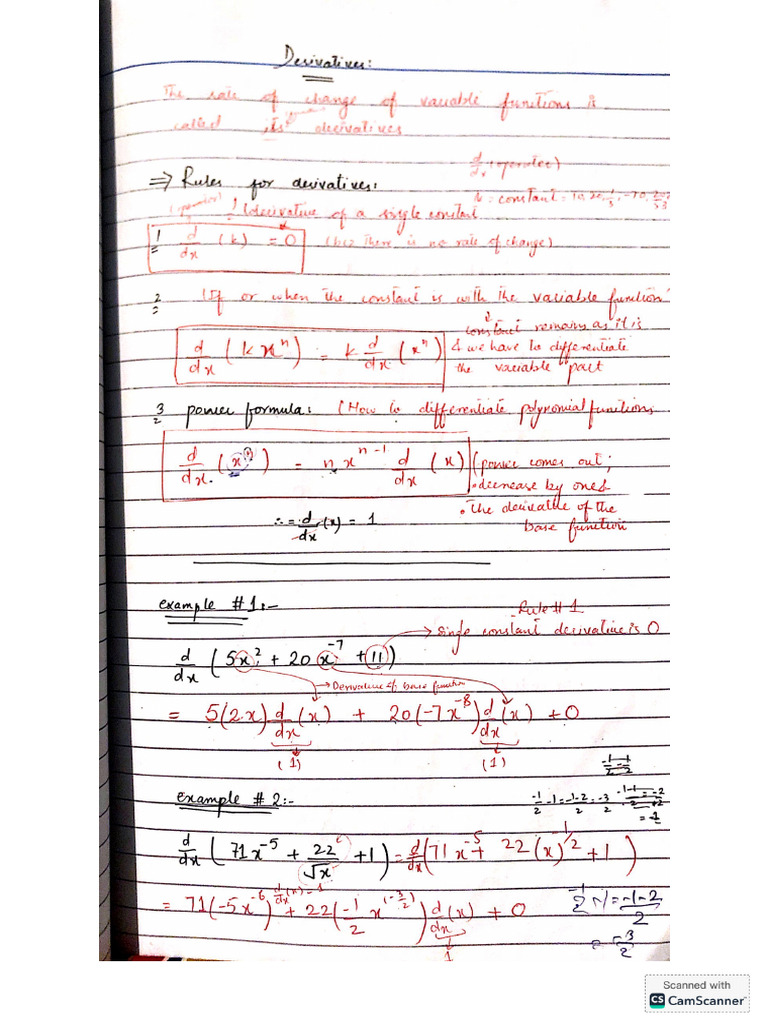 Derivatives:
The rate of change of variable functions is
called its derivatives
d/dx (operator)
⇒ Rules for derivatives:
k = constant = 10, 20, 1/3, -70,
(operator) (derivative of a single constant
1 d/dx (k) = 0 (bcz there is no rate of change)
2 (If or when the constant is with the variable function
d/dx (k xⁿ) = k d/dx (xⁿ)
constant remains as it is
& we have to differentiate
the variable part
3 power formula: (How to differentiate polynomial functions
d/dx (xⁿ) = n xⁿ⁻¹ d/dx (x)
(power comes out,
• decrease by ones
• the derivative of the
base function
∴ = d/dx (x) = 1
example #1:-
Rule # 1
→ Single constant derivative is 0
d/dx (5x² + 20 x⁻⁷ + 11)
→ Derivative of base function
= 5(2x) d/dx (x) + 20(-7x⁻⁸) d/dx (x) + 0
(1) (1)
example # 2:-
-1/2 - 1 = -1-2/2 = -3/2
d/dx (71x⁻⁵ + 22/√x + 1) = d/dx (71x⁻⁵ + 22(x)^-1/2 + 1)
= 71(-5x⁻⁶) d/dx(x)=1 + 22(-1/2 x^(-3/2)) d/dx (x) + 0
1
-1/2 -1/1 = -1-2/2
= -3/2
Scanned with
CS CamScanner